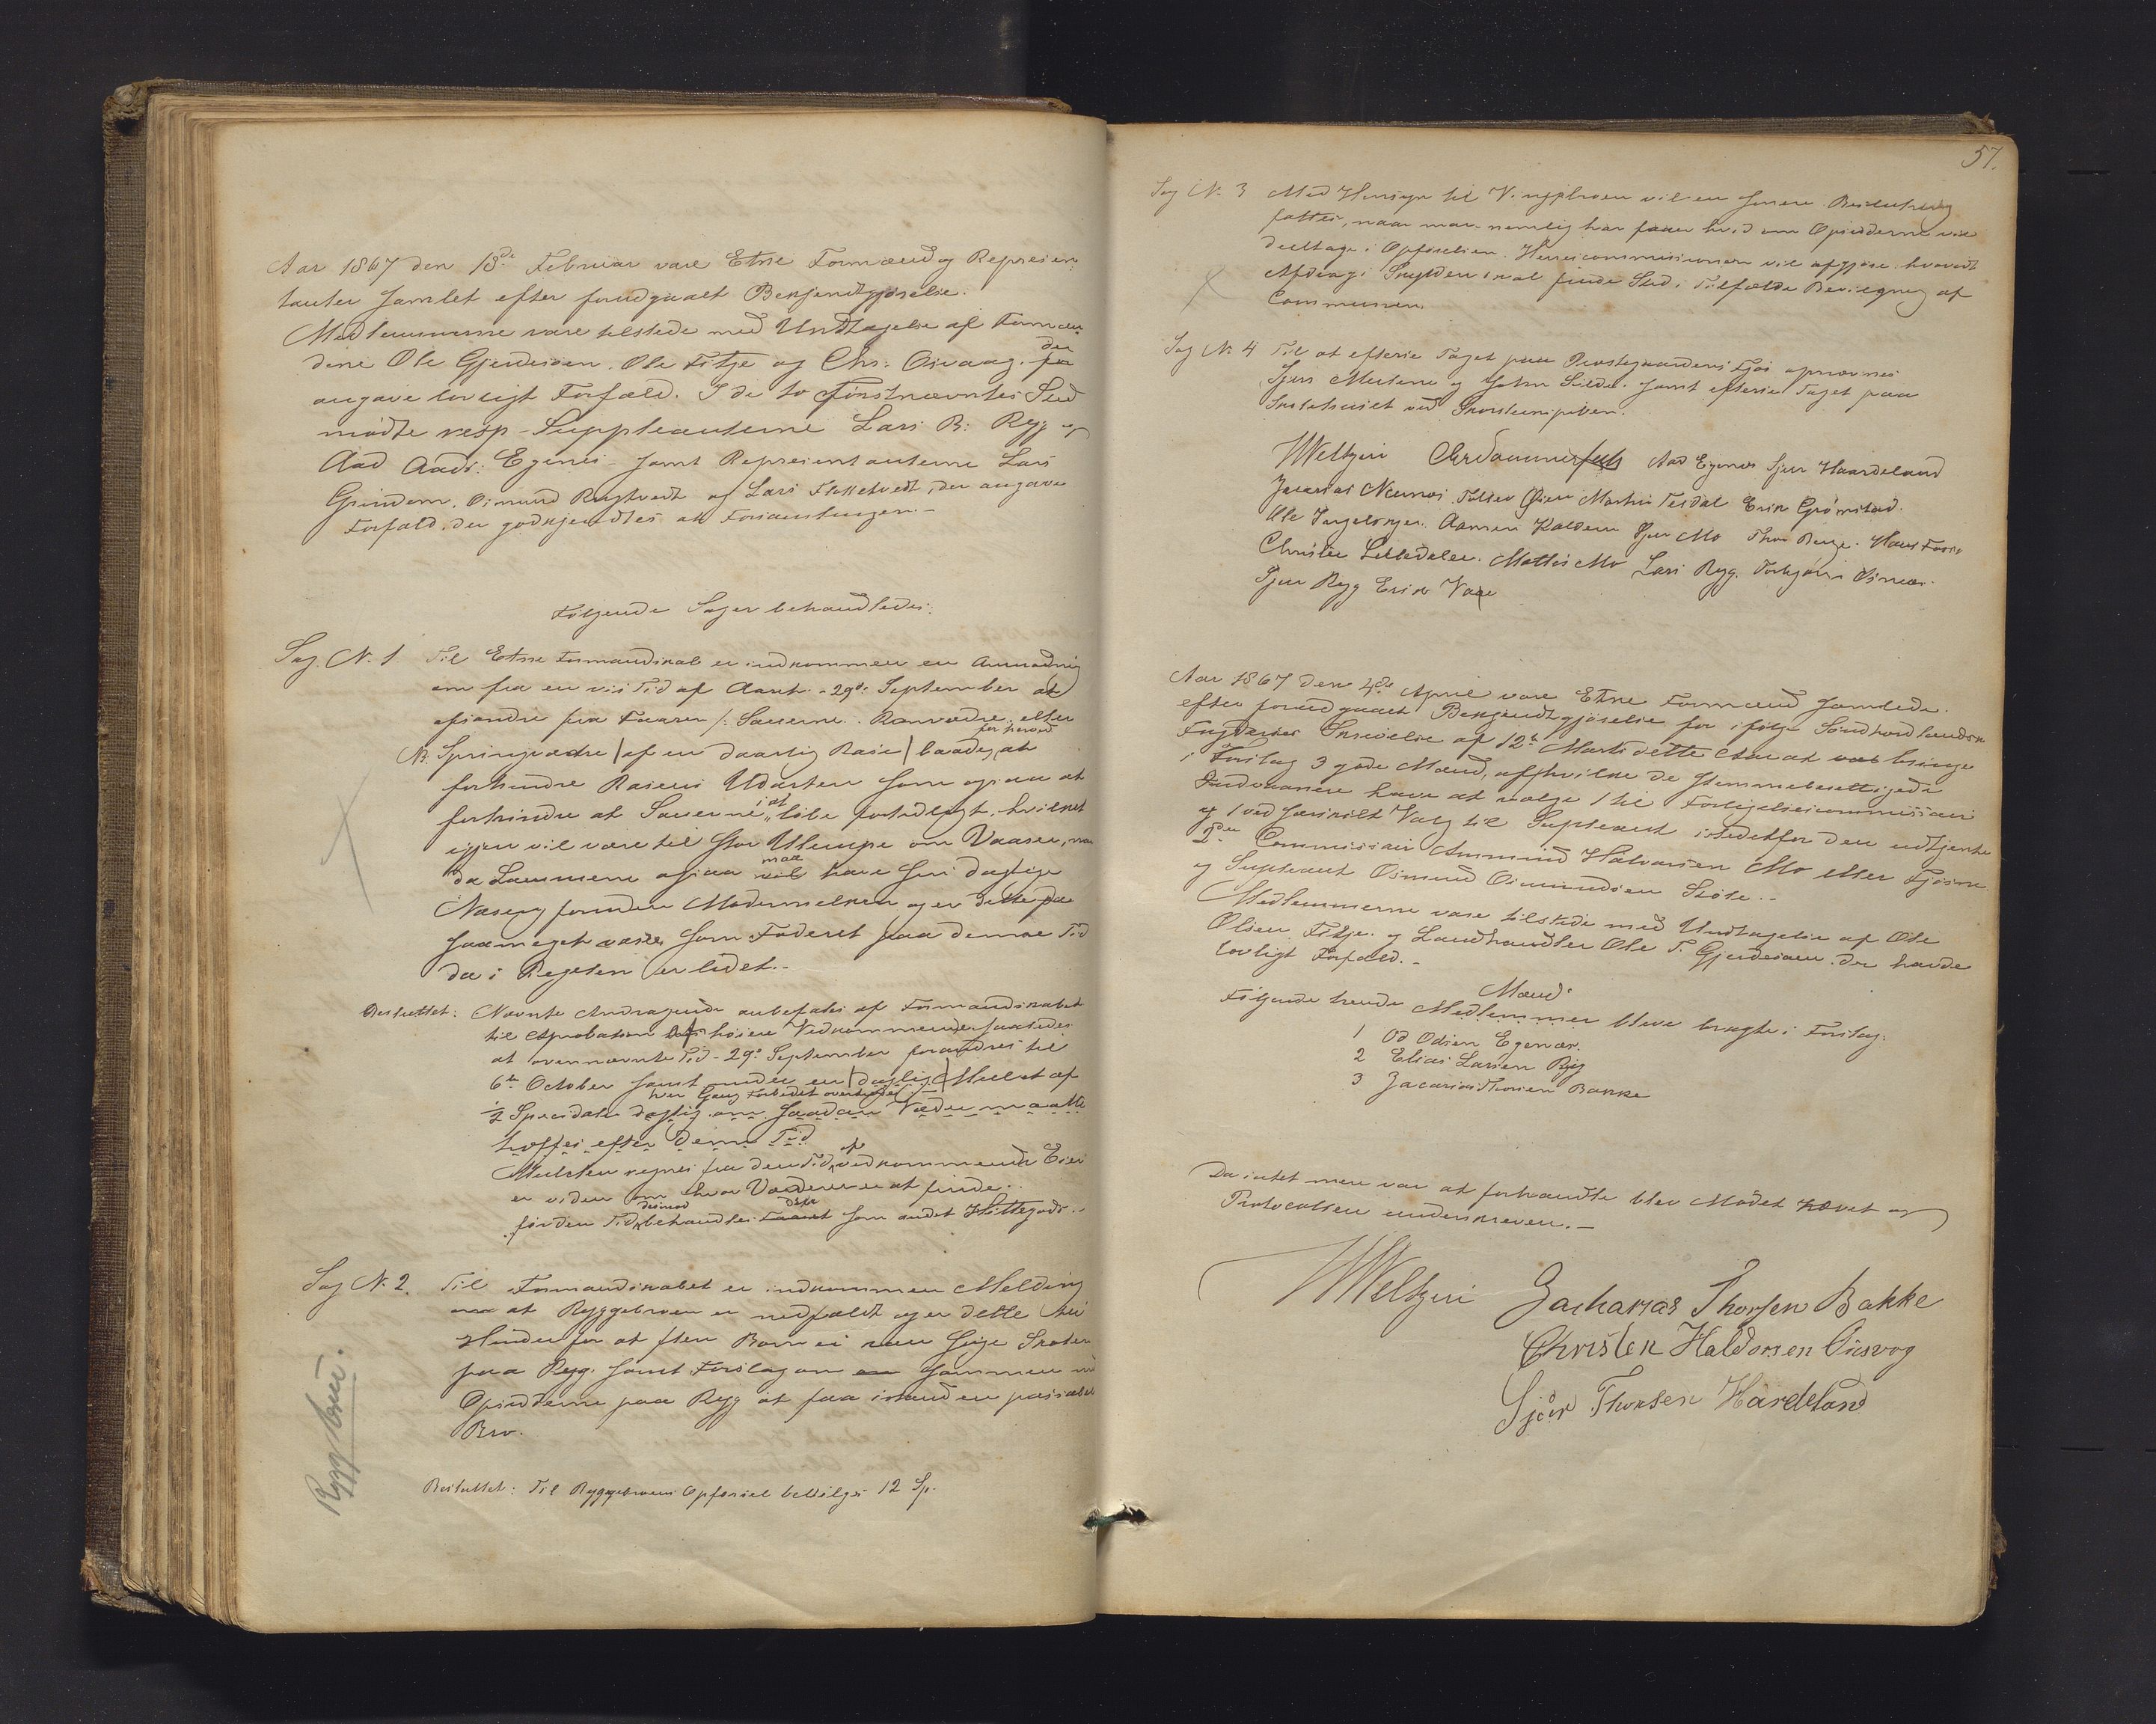 Aar 1867 den 18de Februar vare Etne Formænd og Represen-
tanter samlet efter forudgaaet Bekjendtgjørelse.
Medlemmerne vare tilstede med Undtagelse af Formæn-
dene Ole Gjerdesøen, Ole Fitje og Chr: Øsvaag. der
angave lovligt Forfald. I de to Førstnævntes Sted
mødte resp. Suppleanterne Lars B: Ryg og
Aad Aads: Egenes samt Representanterne Lars
Grindem, Osmund Rygtvedt og Lars Flokketvedt, der angave
Forfald, der godkjendtes af Forsamlingen.-
Følgende Sager behandledes:
Sag N. 1 Til Etne Formandskab er indkommen en Anmodning
om fra en vis Tid af Aaret - 29de September at
afsondre fra Faaren /: Sauerne. Ranvædre eller
NB. Springvædre / af en daarlig Rase / baade for herved at
forhindre Rasens Udarten som ogsaa at
forhindre at Sauerne i at løbe fortidligt, hvilket
igjen vil være til stor Ulempe om Vaaren, naar
da Lammene ogsaa maa have sin daglige
Næring formedelst Modermelken og er dette
saameget værre som Foderet paa denne Tid
da i Regelen er lidet.-
Besluttet: Nævnte Andragende anbefales af Formandskabet
til Aprobation af høiere Vedkommende saaledes
at ovennævnte Tid - 29de September forandres til
6te October samt under en / daglig / Mulct af
hver Gang Forbudet overtrædes
½ Speciedaler daglig om saadan Væder maatte
træffes efter denne Tid
Mulcten regnes fra den Tid af vedkommende Eier
er viden om hvor Væderen er at finde..
før den Tid derimod behandles disse som andet Hittegods.-
Sag N. 2. Til Formandskabet er indkommen Melding
at Ryggebroen er nedfaldt og er dette til
Hinder for at flere Børn ei kan søge Skolen
paa Ryg. samt Forslag om sammen med
Opsidderne paa Ryg at faa istand en passabel
Bro.
Ryggbroen.
Besluttet: Til Ryggebroens Opførsel bevilges 12 Sp.
57.
Sag N. 3 Med Hensyn til V. ngsbroen vil en senere Beslutning
fattes, naar man nemlig har hvad om Opsidderne vil
deeltage i Opførselen. Herredscommissionen vil afgjøre hvorvidt
Afdrag i Skylden skal finde Sted, i Tilfælde Bevilgning af
Communen.
Sag N. 4 Til at efterse Taget paa Prestegaardens Fjøs opnævnes
Sjur Mehtene og John Silde. samt efterse Taget paa
Skolehuset ved Skorsteenspiben.
WWeltzin Aad Egenes Sjur Haardeland
Zacarias Næmes Tollev Øien Martin Tesdal Erik Grønstad.
Ole Ingelsgjer. Aamun Kaldem Sjur Mo Thor Berge. Hans Fosse
Christen Lilledalen. Mathis Mo Lars Ryg. Torbjørn Osnes.
Sjur Ryg Erik Vaae
Aar 1867 den 4de April vare Etne Formænd samlede
efter forudgaaet Bekjendtgjørelse for ifølge Søndhordlands
Fogderies Skrivelse af 12te Marts dette Aar at bringe
i Forslag 3 gode Mænd, af hvilke de stemmeberettigede
Indvaanere have at vælge 1 til Forligelsescommissair
og 1 ved særskilt Valg til Supleant istedetfor den udtjente
2den Commissair Ammund Halvorsen Mo eller Fjøsne
og Supleant Osmund Osmundsen Støle.-
Medlemmerne vare tilstede med Undtagelse af Ole
Olsen Fitje. og Landhandler Ole T. Gjerdesøen. der havde
lovligt Forfald.-
Følgende trende Mænd Medlemmer bleve bragte i Forslag:
1 Od Odsen Egenæs.
2 Elias Larsen Ryg
3 Zacarias Thorsen Bakke
Da intet mere var at forhandle blev Mødet hævet og
Protocollen underskreven.-
WWeltzin Zacharias Thorsen Bakke
Christen Haldorsen Öiesvog
Sjør Thorsen Hårdeland